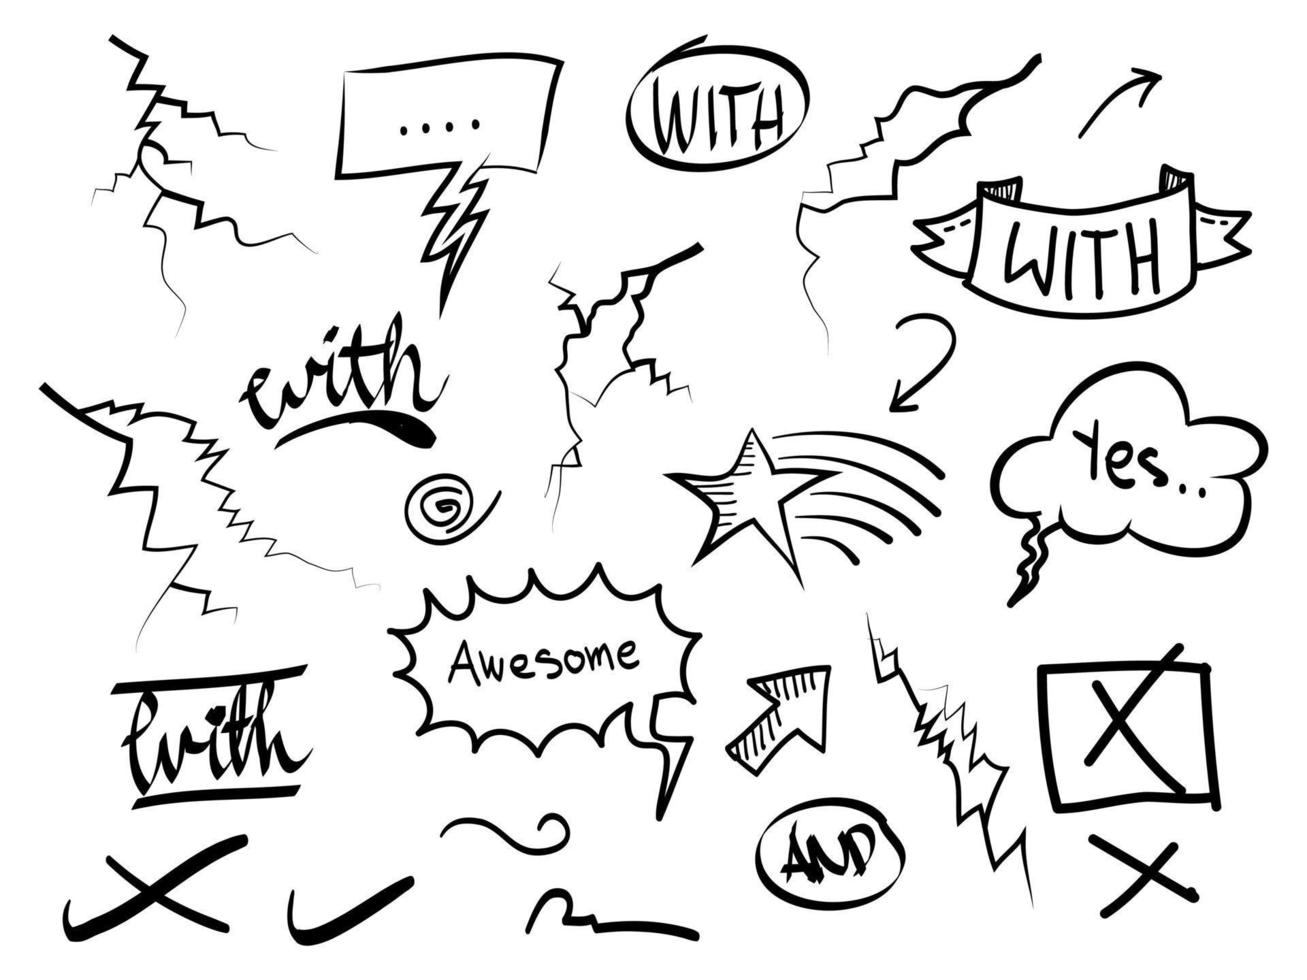 ....
WITH
WITH
with
Yes..
Awesome
with
AND